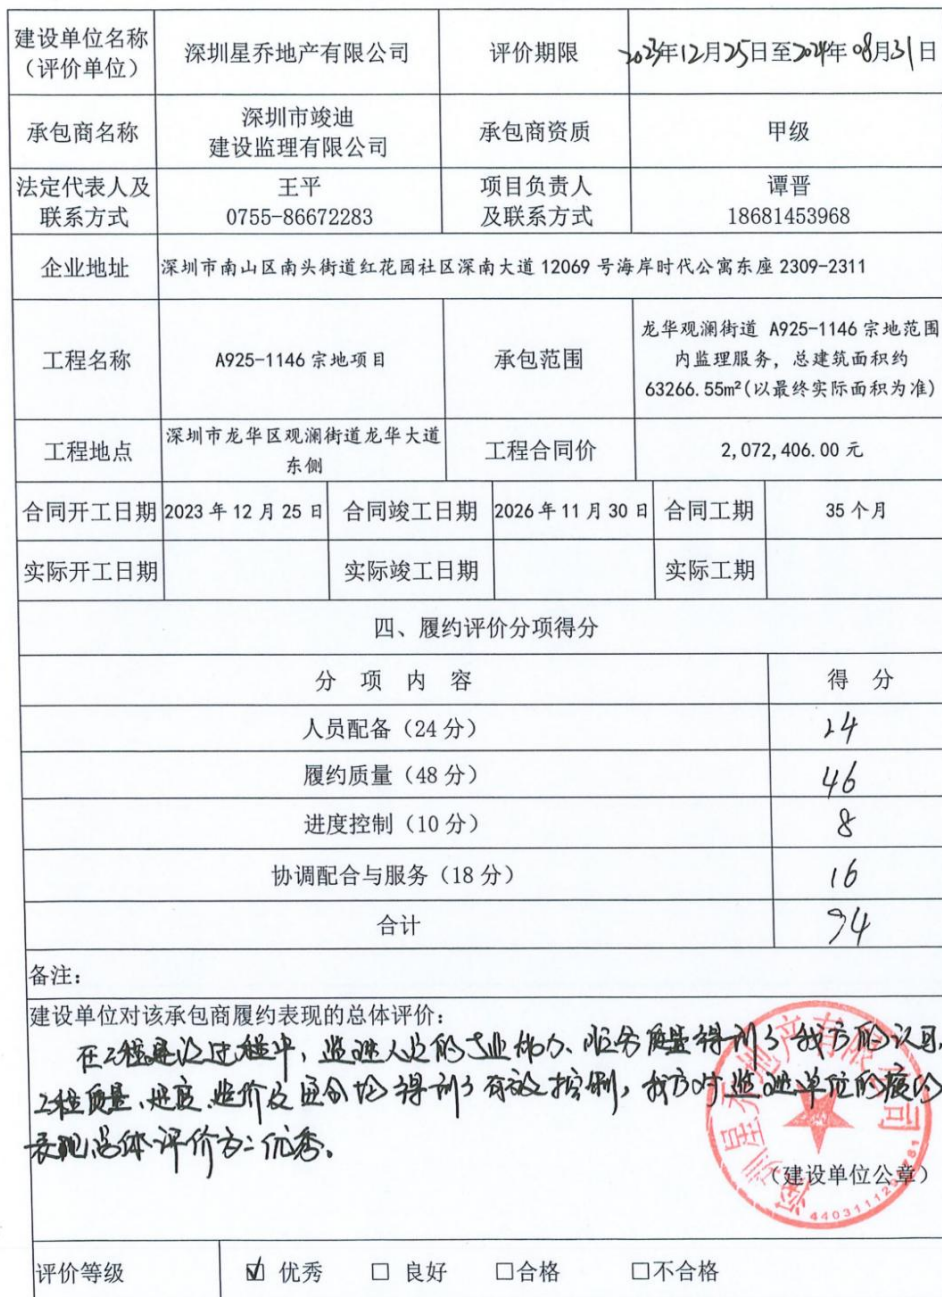 建设单位名称
（评价单位）
深圳星乔地产有限公司
评价期限
2023年12月25日至2024年08月31日
承包商名称
深圳市竣迪
建设监理有限公司
承包商资质
甲级
法定代表人及
联系方式
王平
0755-86672283
项目负责人
及联系方式
谭晋
18681453968
企业地址
深圳市南山区南头街道红花园社区深南大道 12069 号海岸时代公寓东座 2309-2311
工程名称
A925-1146 宗地项目
承包范围
龙华观澜街道 A925-1146 宗地范围
内监理服务，总建筑面积约
63266.55m²(以最终实际面积为准)
工程地点
深圳市龙华区观澜街道龙华大道
东侧
工程合同价
2,072,406.00 元
合同开工日期
2023 年 12 月 25 日
合同竣工日期
2026 年 11 月 30 日
合同工期
35 个月
实际开工日期
实际竣工日期
实际工期
四、履约评价分项得分
分 项 内 容
得 分
人员配备（24 分）
24
履约质量（48 分）
46
进度控制（10 分）
8
协调配合与服务（18 分）
16
合计
94
备注：
建设单位对该承包商履约表现的总体评价：
在工程建设过程中，监理人员的专业能力、服务质量得到了我方的认可，
工程质量、进度、造价及安全均得到了有效控制，我方对监理单位的履约
表现总体评价为：优秀。
深圳星乔地产有限公司
（建设单位公章）
评价等级
☑ 优秀 □ 良好 □合格 □不合格